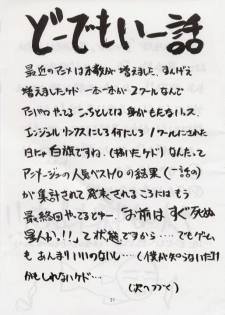 どーでもいー話
最近のアニメは本数が増えました、すんげぇ
増えましたケド 一本一本が 2クールなんで
アニパロやってる こっちとしては 身がもたないっス
エンジェルリンクスにしろ何にしろ 1クールにされた
日にゃ 白旗ですね、(描いたケド) なんたって
アニメージュの人気ベスト10の結果 (一話の)
が 集計されて 発表される ころには もう
最終回やってるとゆー、お前はすぐ死ぬ
星人か。!!って状態ですから…でもゲーム
も あんまりいいのないし…(僕が知らないだけ
かもしれないケド…
(次へつづく)